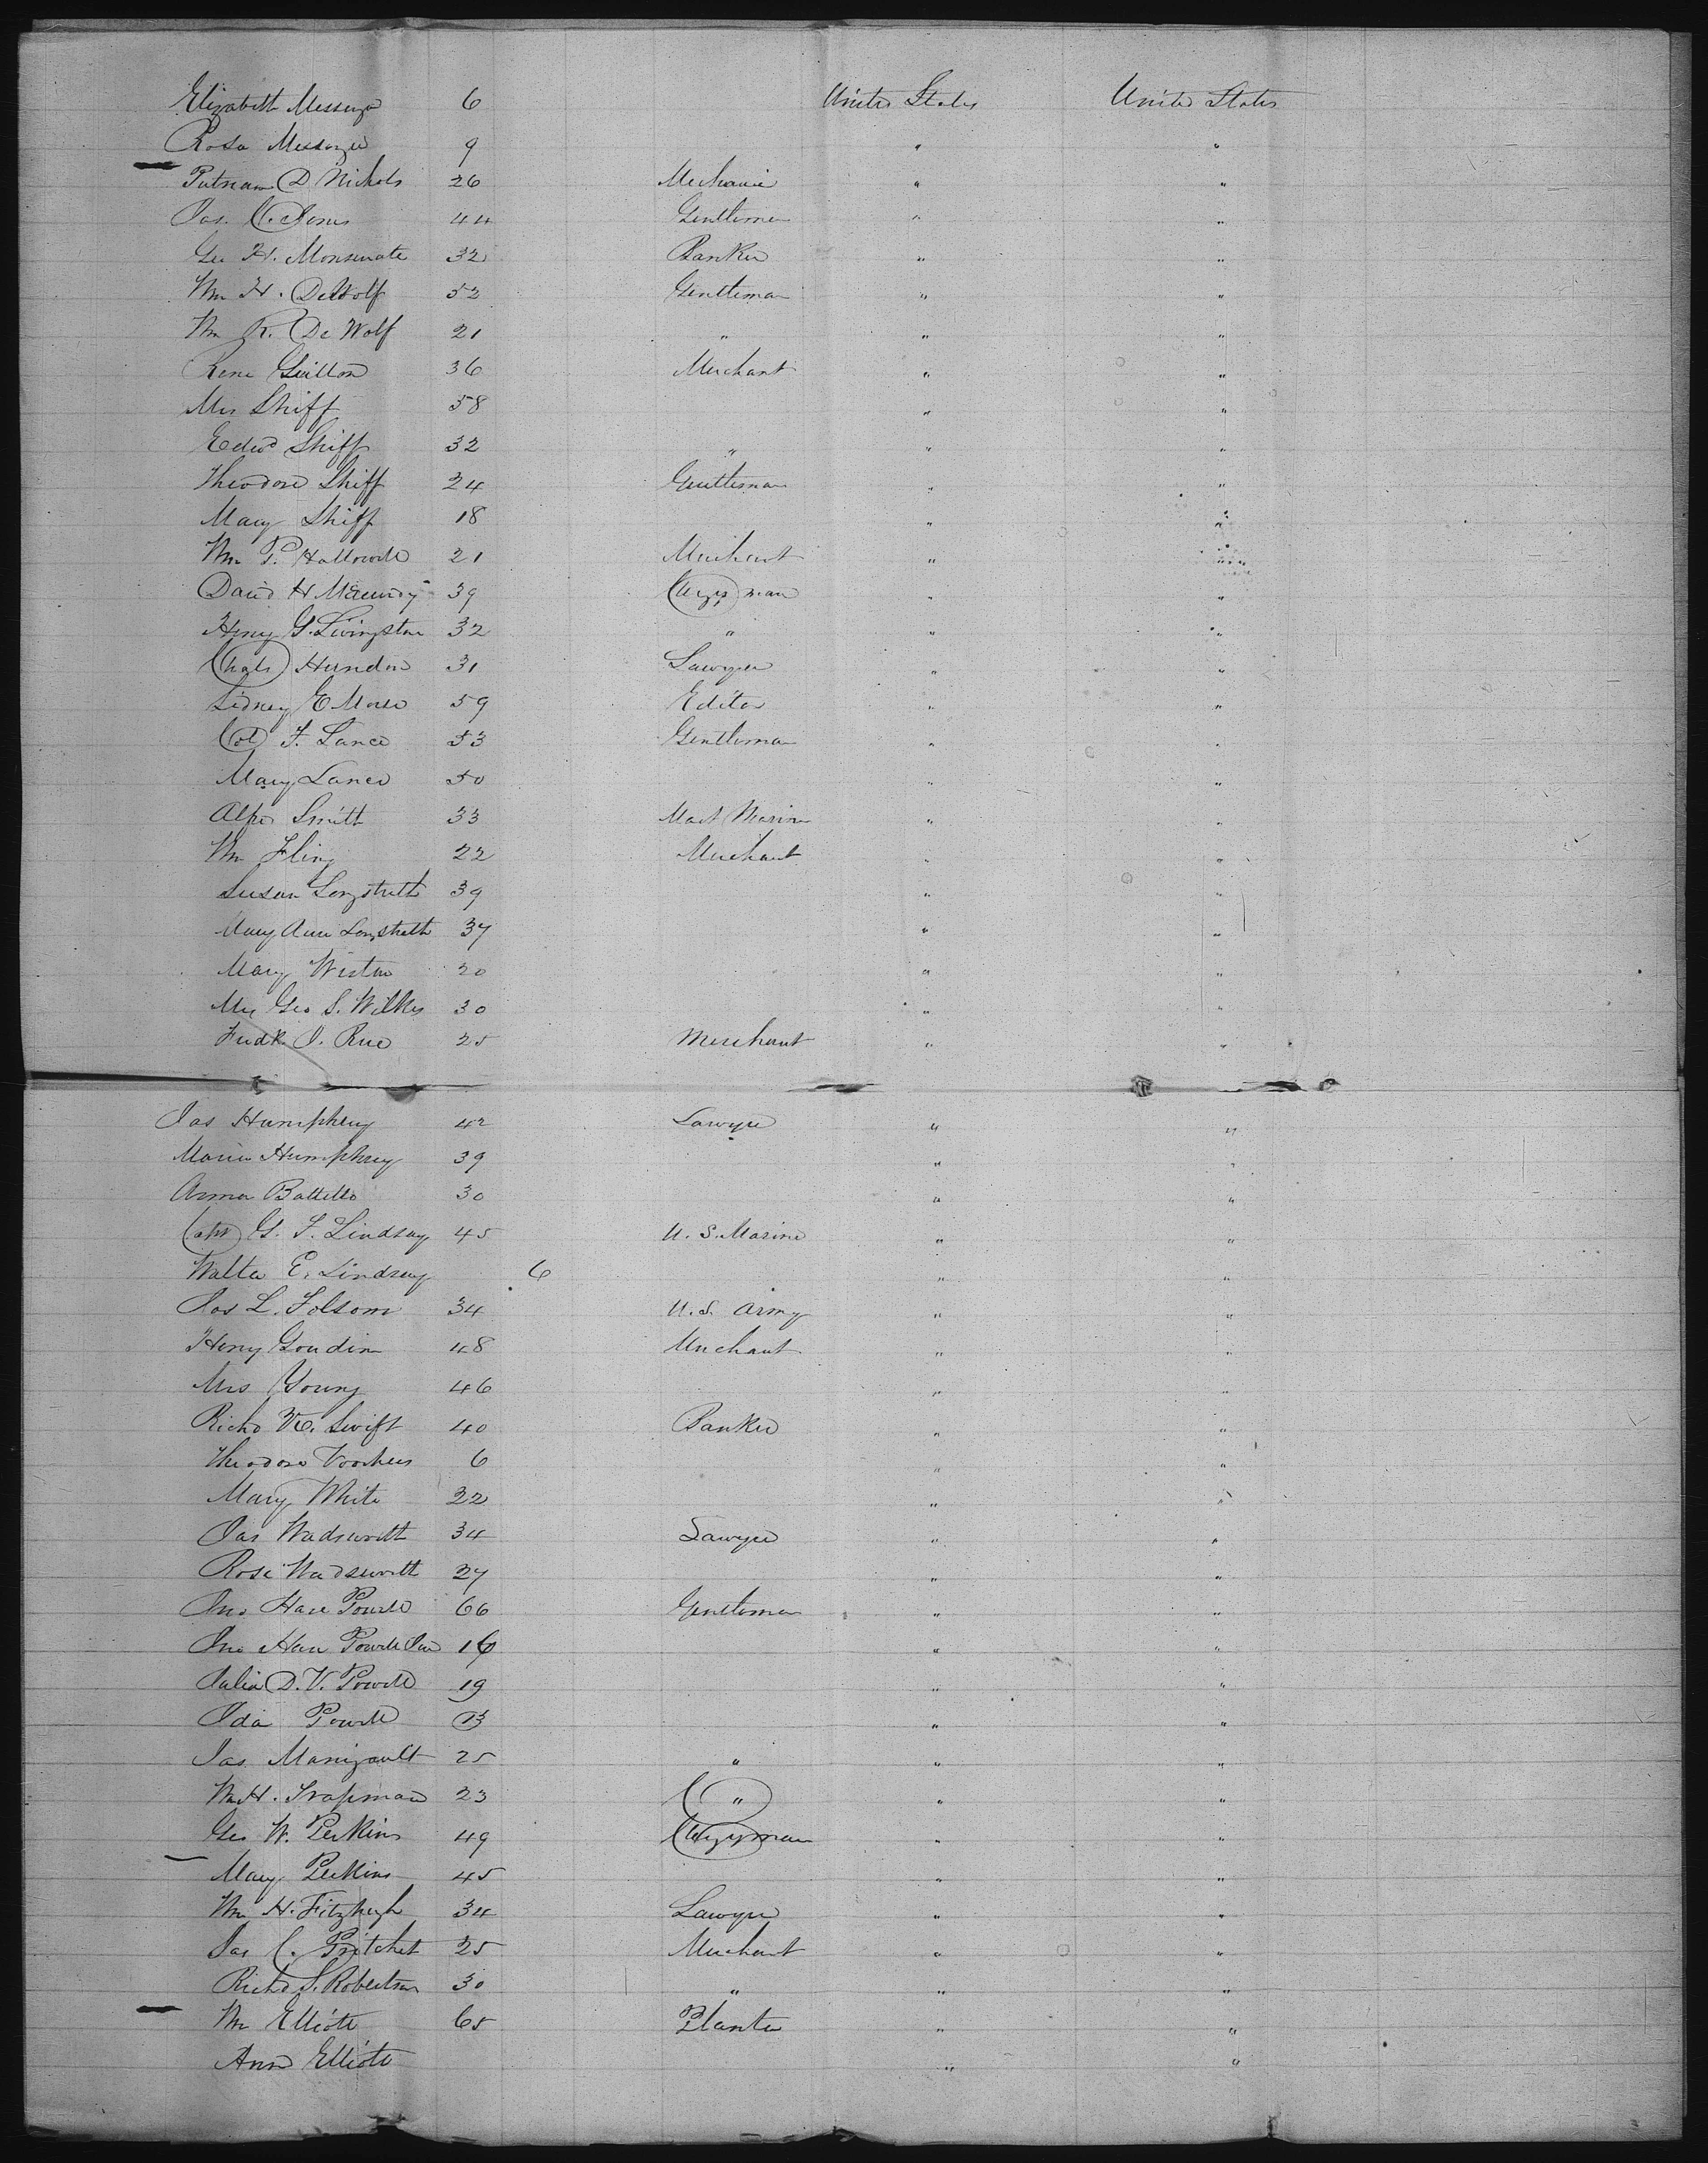 Elizabeth Messenger 6 United States United States
Rosa Messenger 9 " "
Putnam D Nichols 26 Mechanic " "
Jas. C. Jones 44 Gentleman " "
Geo H. Monserrate 32 Banker " "
Wm H. DeWolf 52 Gentleman " "
Wm R. De Wolf 21 " " "
Rene Guillon 36 Merchant " "
Mrs Shiff 58 " "
Edwd Shiff 32 " " "
Theodore Shiff 24 Gentleman " "
Mary Shiff 18 " "
Wm P. Hallowell 21 Merchant " "
David H 39 Clergyman " "
Henry G. Livingston 32 " " "
Chals Herndon 31 Lawyer " "
Sidney E Morse 59 Editor " "
Col F. Lance 53 Gentleman " "
Mary Lance 50 " "
Alfred Smith 33 Mast Marine " "
Wm Fling 22 Merchant " "
Susan Longstreth 39 " "
Mary Ann Longstreth 37 " "
Mary Weston 20 " "
Mrs Geo S. Wilkes 30 " "
Fredk. J. Rue 25 Merchant " "
Jas Humphrey 42 Lawyer " "
Maria Humphrey 39 " "
Anna Battelle 30 " "
Capt G. F. Lindsay 45 U. S. Marine " "
Walter E. Lindsay 6 " "
Jos L. Folsom 34 U.S. Army " "
Henry Goudin 48 Merchant " "
Mrs Young 46 " "
Richd K. Swift 40 Banker " "
Theodore Voorhees 6 " "
Mary White 22 " "
Jas Wadsworth 34 Lawyer " "
Rose Wadsworth 27 " "
Jno Hare Powell 66 Gentleman " "
Jno Hare Powell Jun 16 " "
Julia D. V. Powell 19 " "
Ida Powell 13 " "
Jas Manigault 25 " " "
Wm H. Trapman 23 " " "
Geo W. Perkins 49 Clergyman " "
Mary Perkins 45 " "
Wm H. Fitzhugh 34 Lawyer " "
Jas C. Pritchet 25 Merchant " "
Richd S. Robertson 30 " " "
Wm Elliott 65 Planter " "
Ann Elliott " "